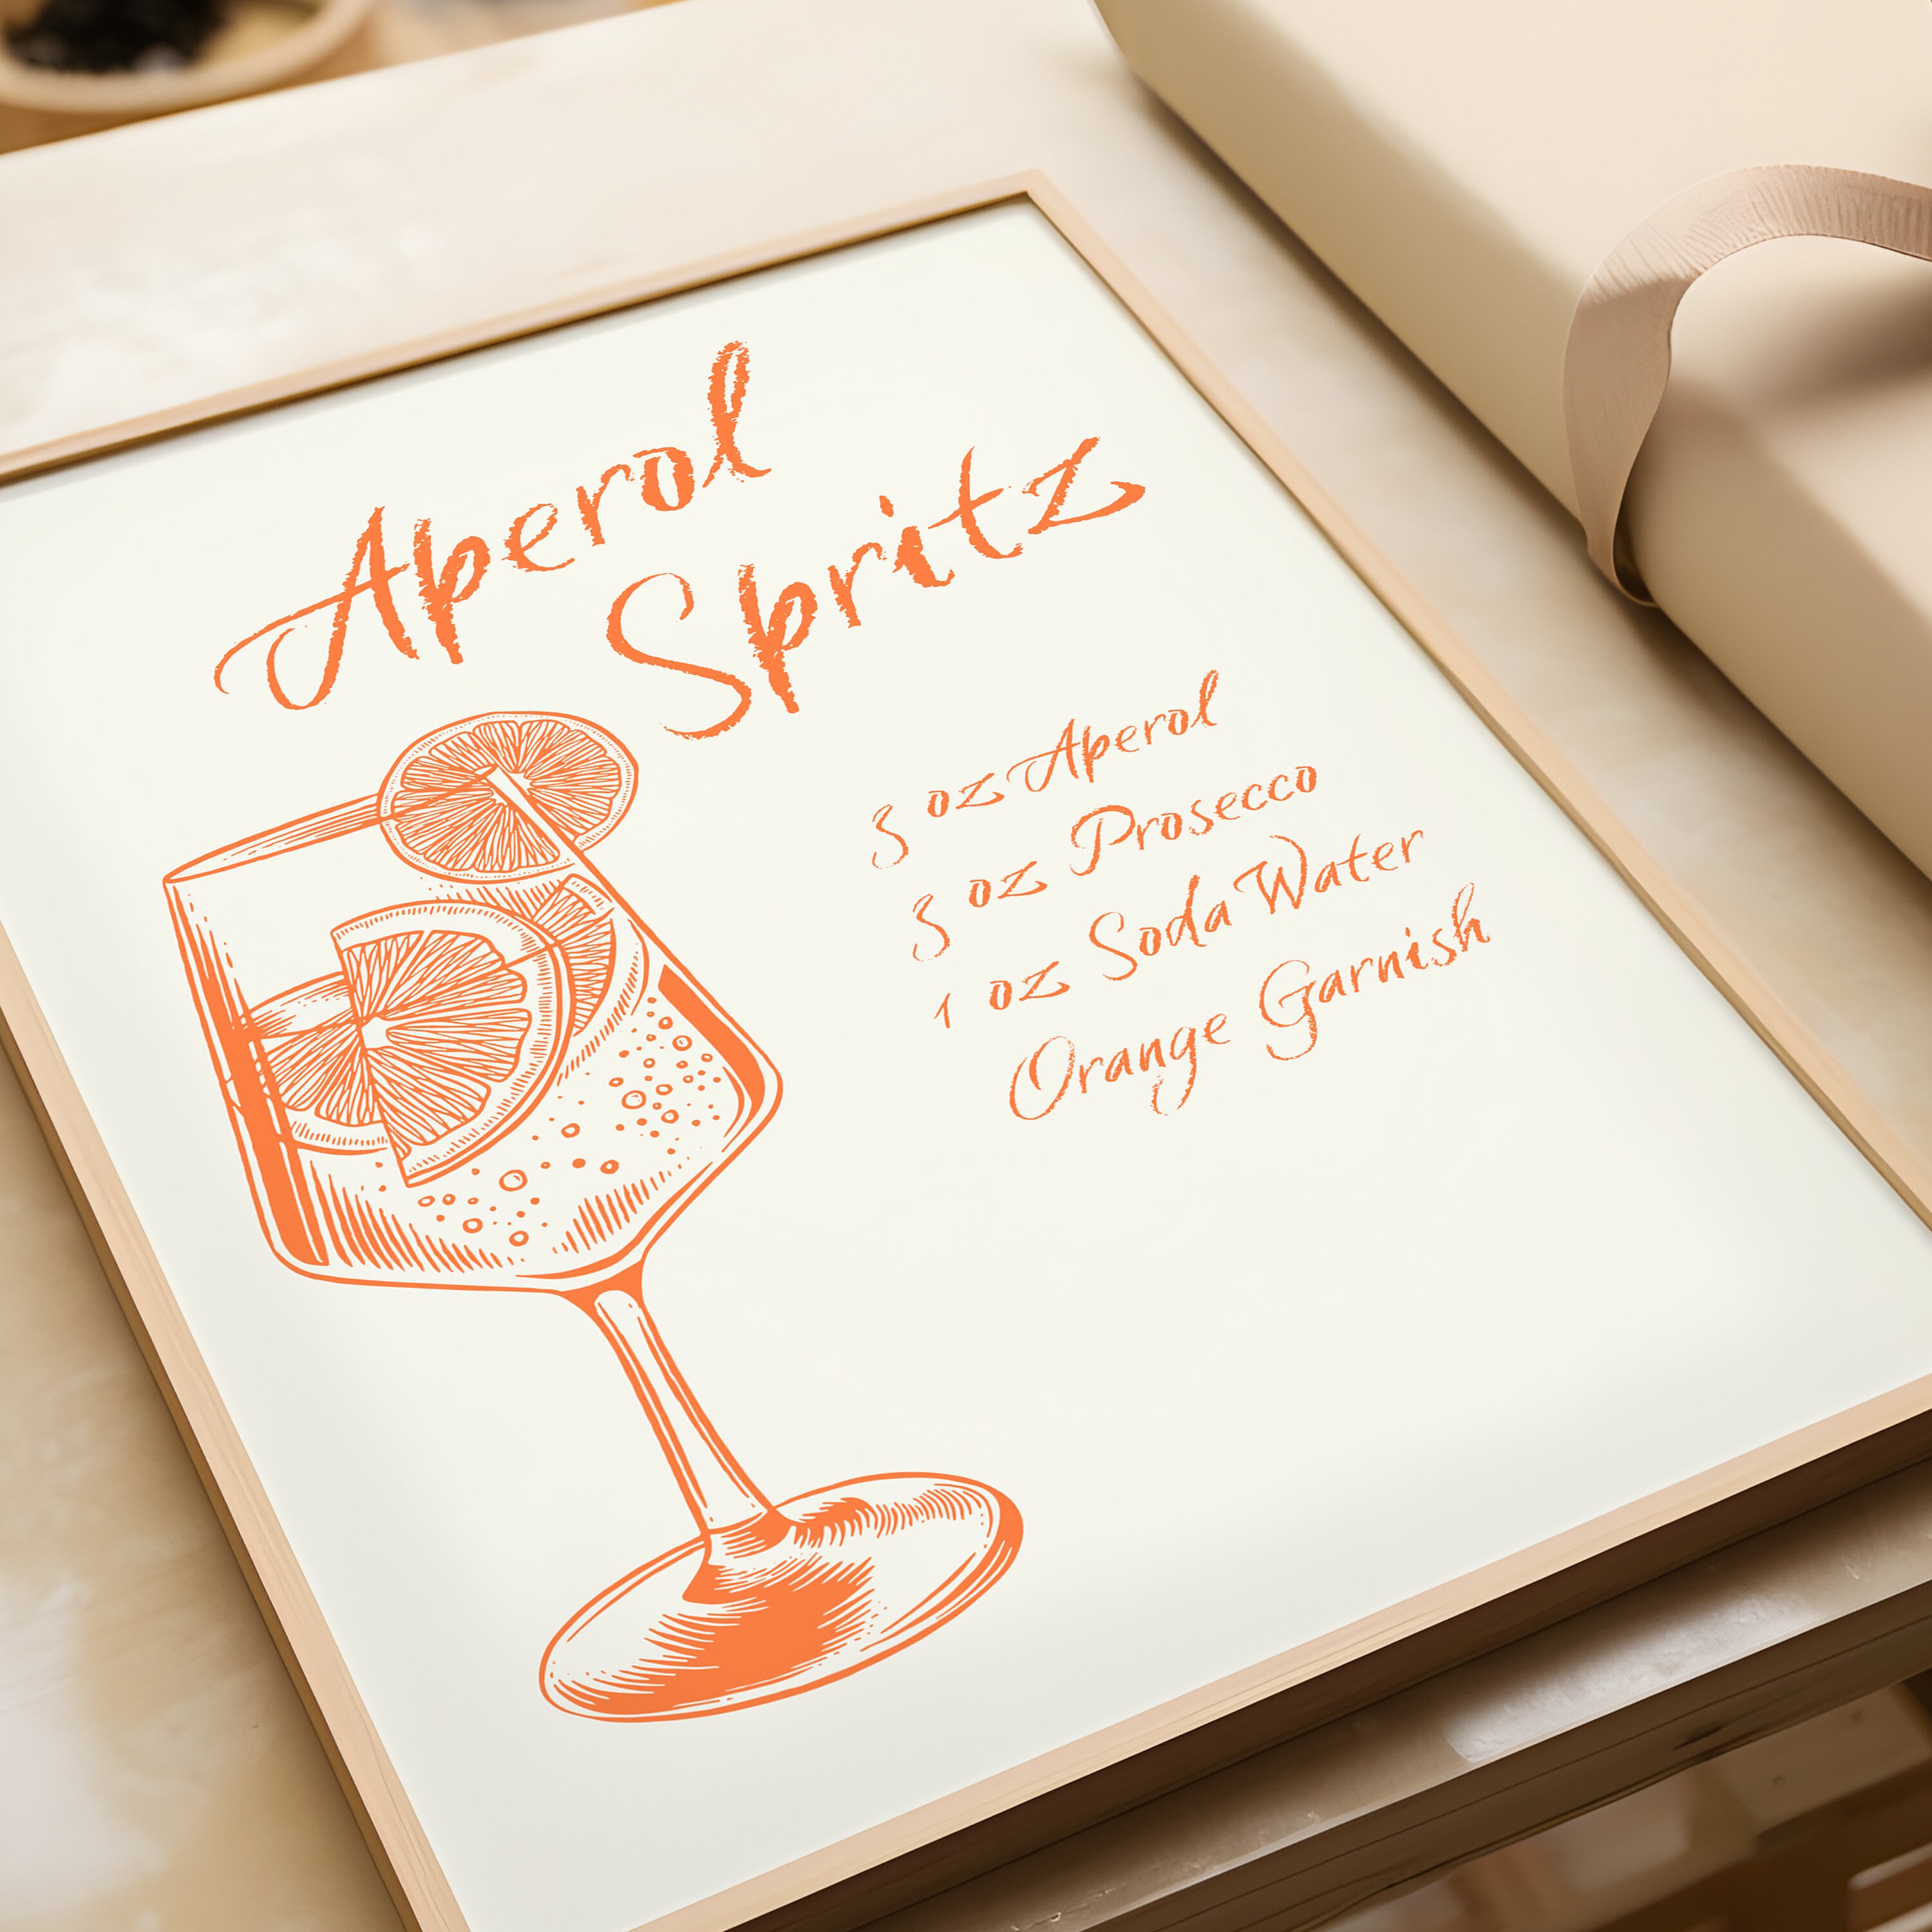 Aperol
Spritz
3 oz Aperol
3 oz Prosecco
1 oz Soda Water
Orange Garnish